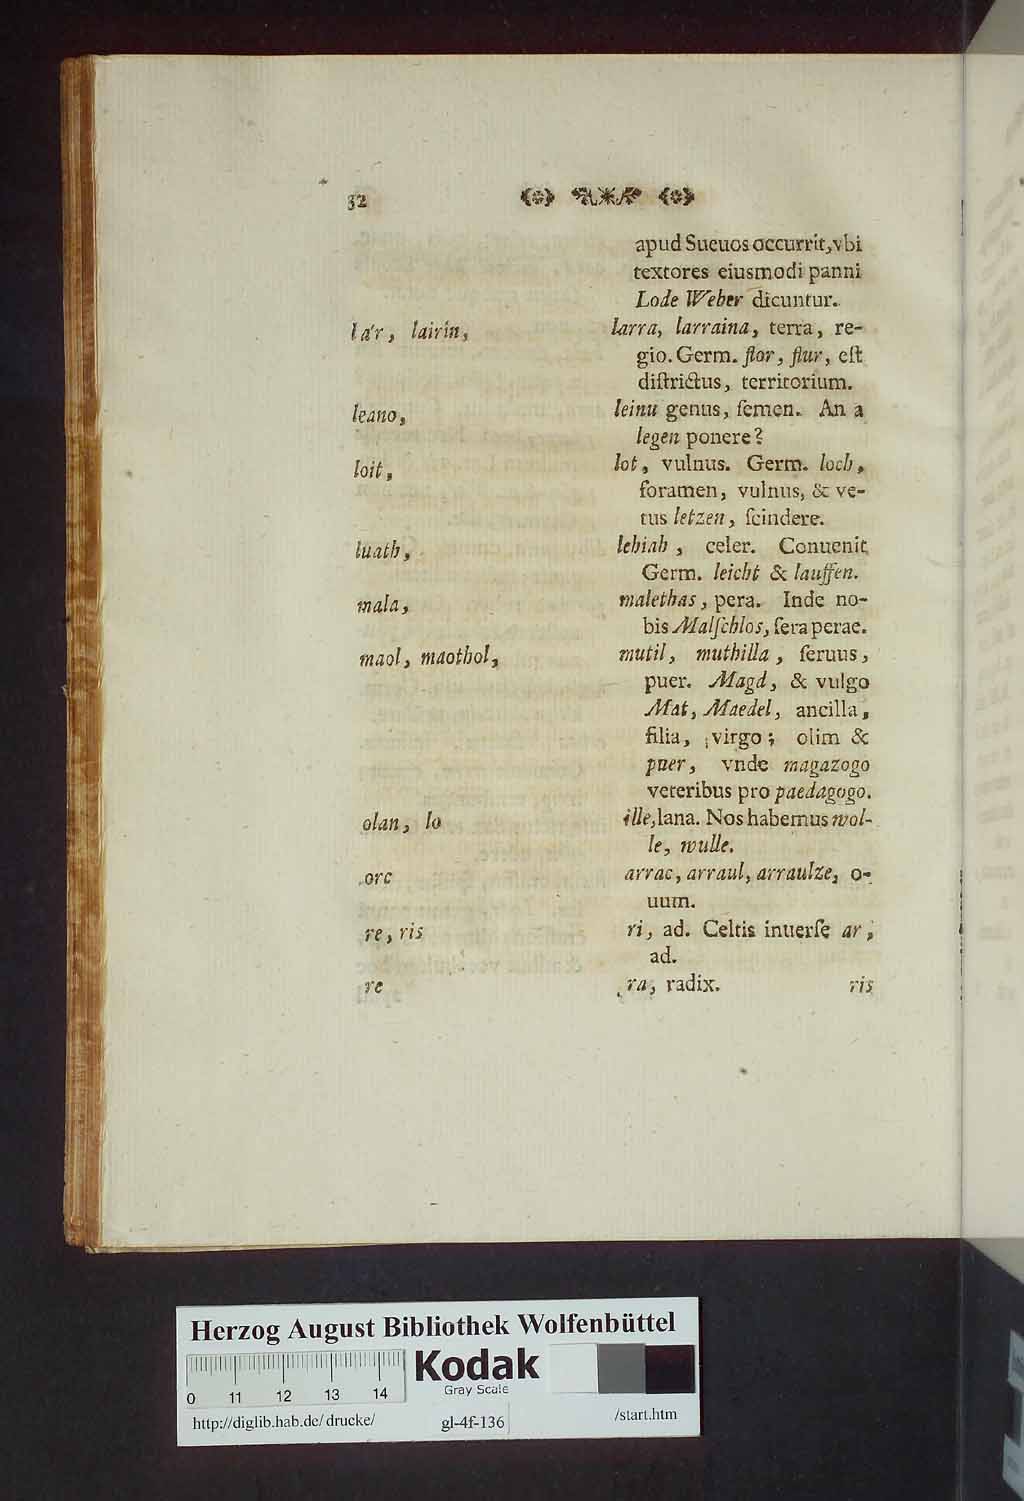 32
apud Sueuos occurrit, vbi
textores eiusmodi panni
Lode Weber dicuntur.
la'r, lairin, larra, larraina, terra, re-
gio. Germ. flor, flur, eſt
diſtrictus, territorium.
leano, leinu genus, ſemen. An a
legen ponere?
loit, lot, vulnus. Germ. loch,
foramen, vulnus, & ve-
tus letzen, ſcindere.
luath, lehiah, celer. Conuenit
Germ. leicht & lauffen.
mala, malethas, pera. Inde no-
bis Malſchlos, ſera perae.
maol, maothol, mutil, muthilla, ſeruus,
puer. Magd, & vulgo
Mat, Maedel, ancilla,
filia, virgo; olim &
puer, vnde magazogo
veteribus pro paedagogo.
olan, lo ille, lana. Nos habemus wol-
le, wulle.
orc arrac, arraul, arraulze, o-
uum.
re, ris ri, ad. Celtis inuerſe ar,
ad.
re ra, radix. ris
Herzog August Bibliothek Wolfenbüttel
Kodak
Gray Scale
0 11 12 13 14
http://diglib.hab.de/drucke/ gl-4f-136 /start.htm